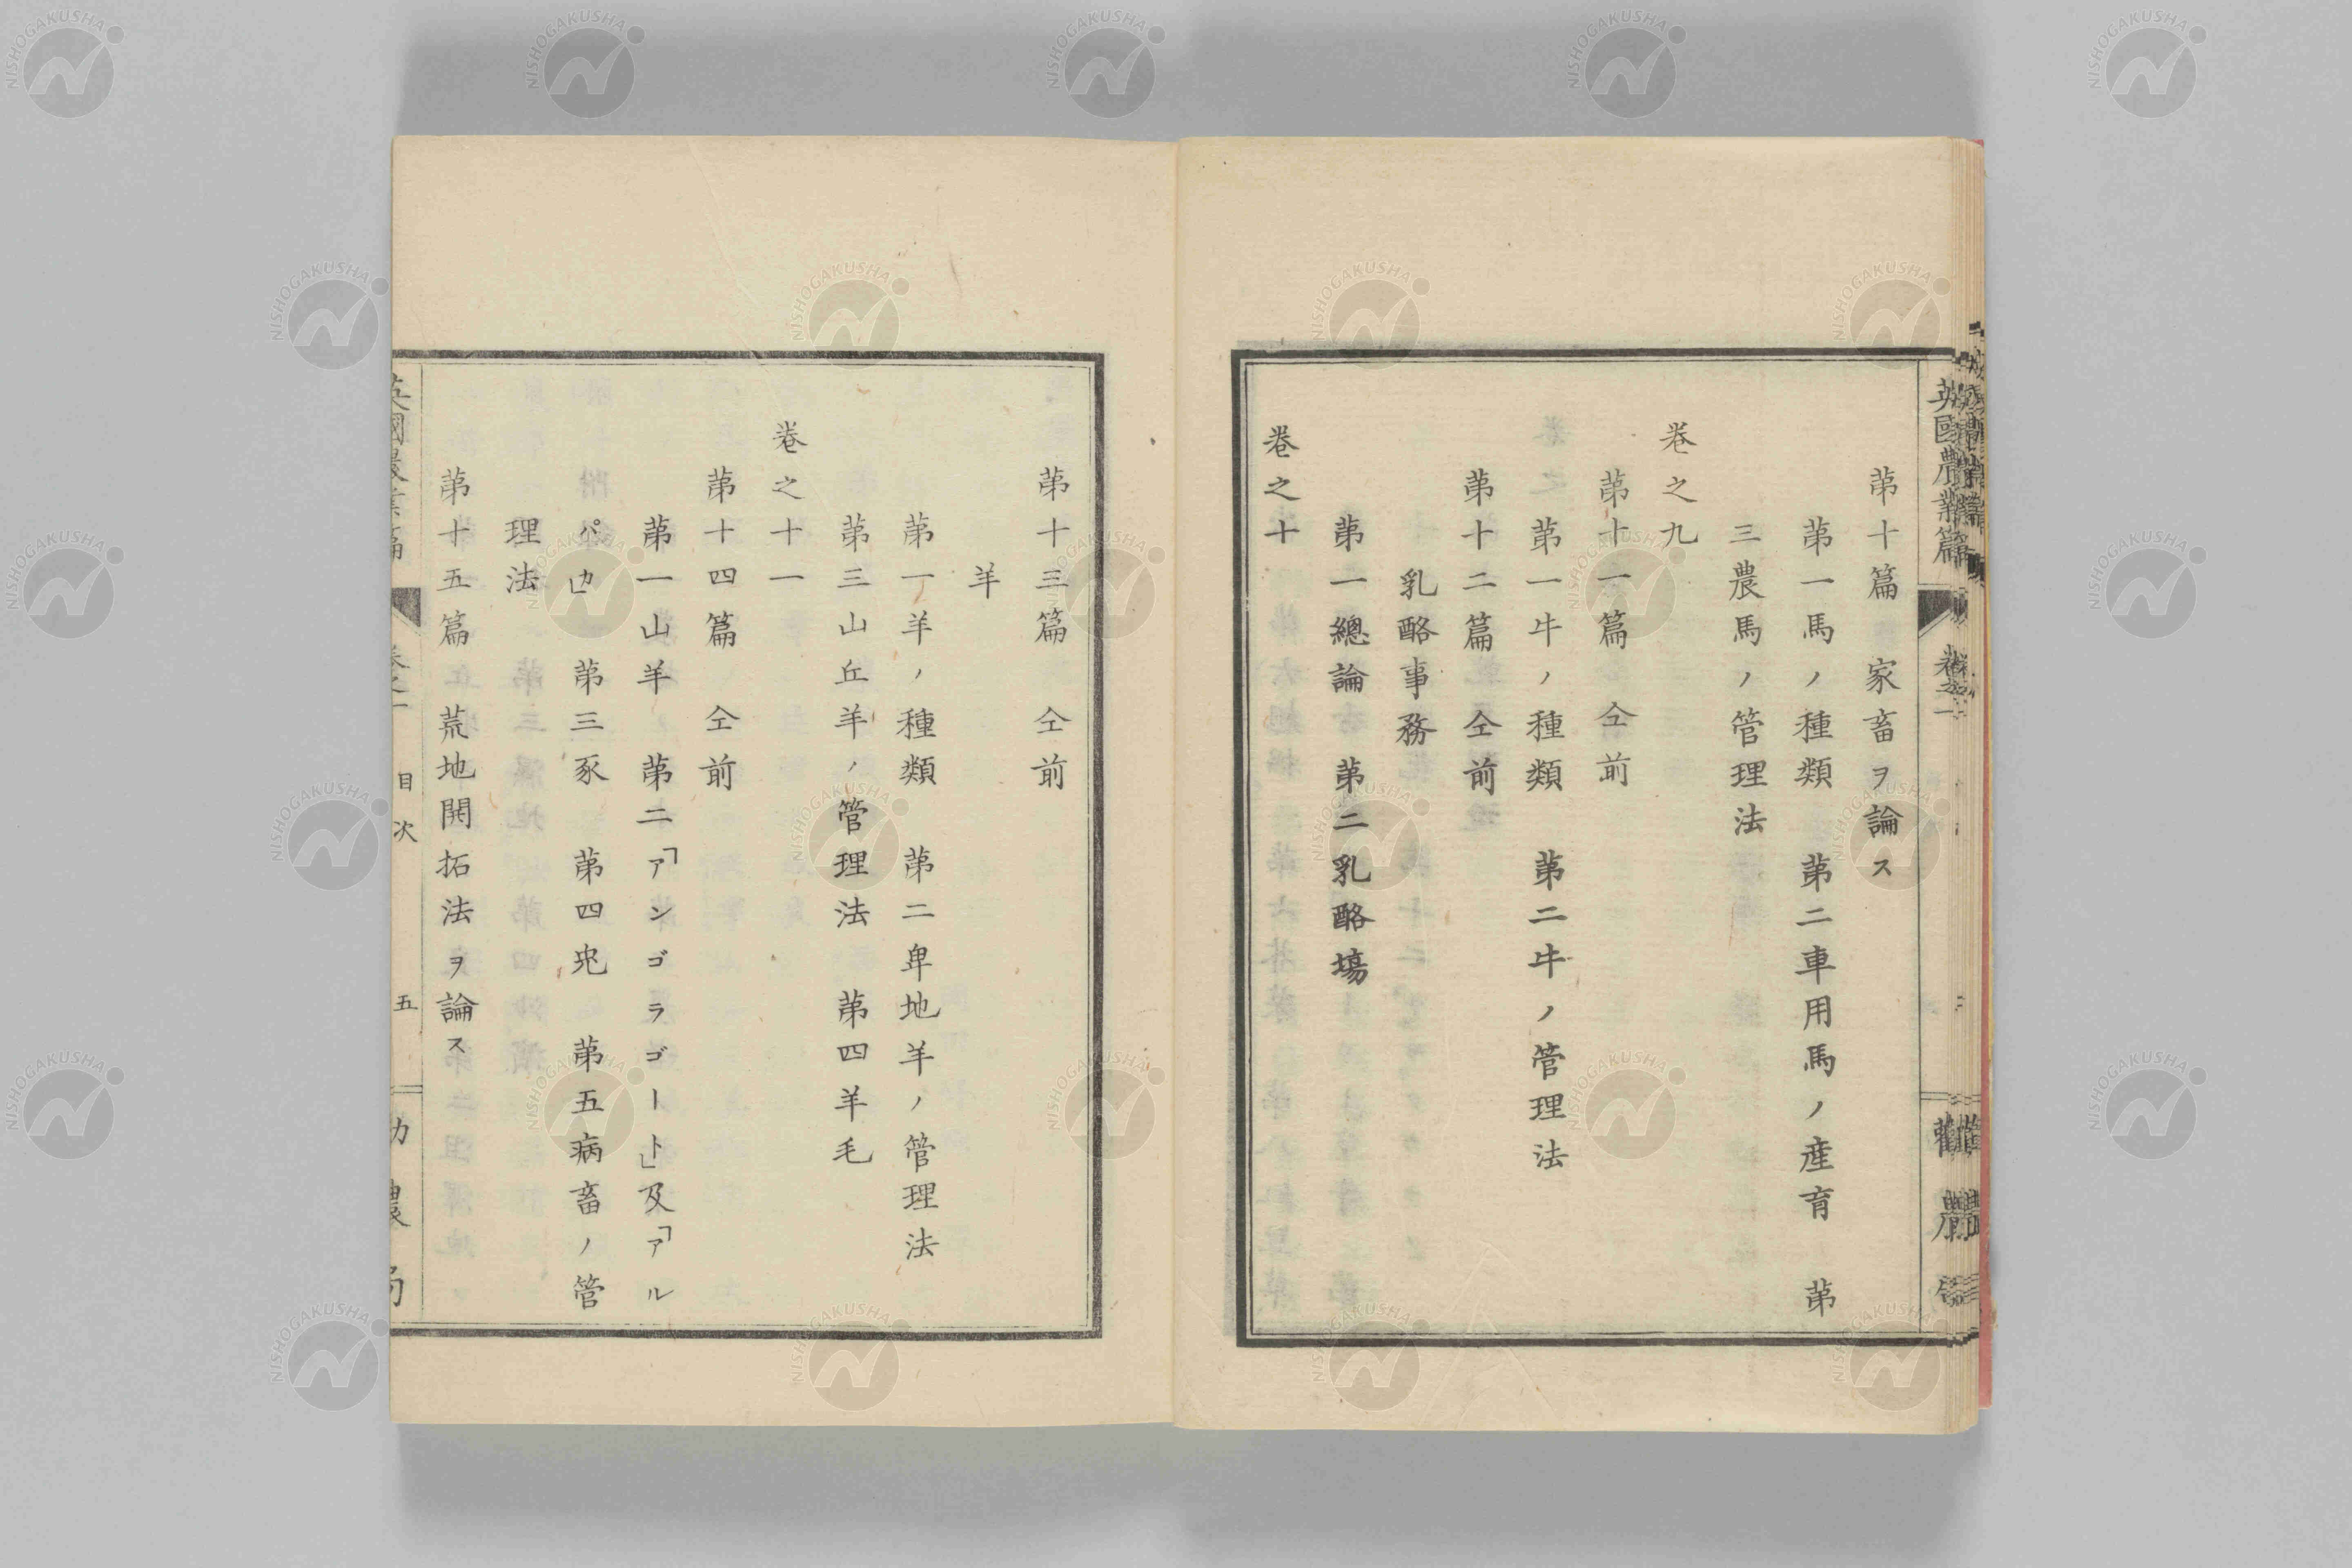 英國農業篇
卷之一
勸農
第十篇　家畜ヲ論ス
第一馬ノ種類　第二車用馬ノ産育　第
三農馬ノ管理法
卷之九
第十一篇　仝前
第一牛ノ種類　第二牛ノ管理法
第十二篇　仝前
乳酪事務
第一總論　第二乳酪塲
卷之十
第十三篇　仝前
羊
第一羊ノ種類　第二卑地羊ノ管理法
第三山丘羊ノ管理法　第四羊毛
卷之十一
第十四篇　仝前
第一山羊　第二「アンゴラゴート」及「アル
パカ」　第三豕　第四兎　第五病畜ノ管
理法
第十五篇　荒地開拓法ヲ論ス
英國農業篇
卷之一
目次
五
勸農局
NISHOGAKUSHA